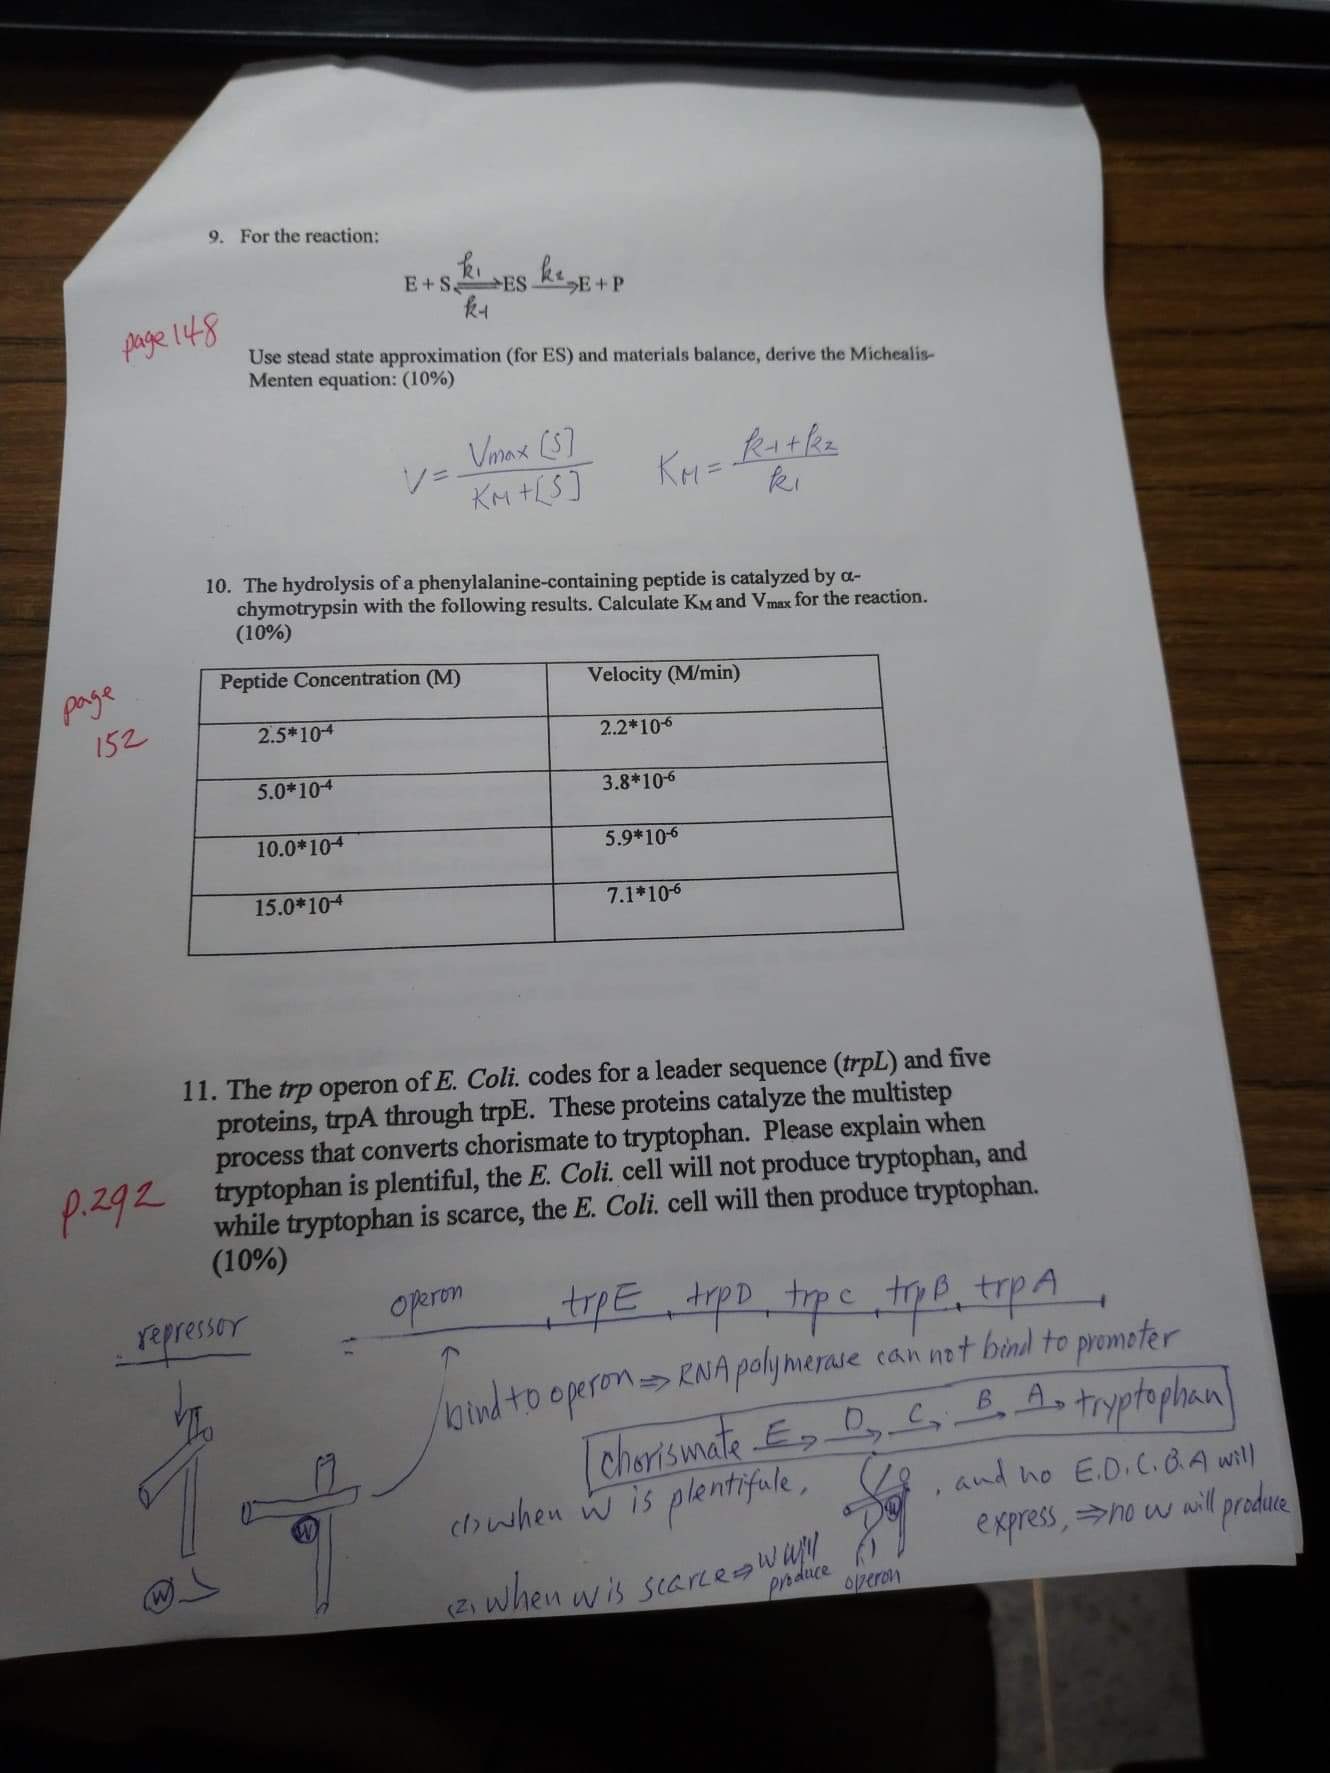 9. For the reaction:
E + S k1 ⇌ k-1 ES k2 → E + P
page 148
Use stead state approximation (for ES) and materials balance, derive the Michealis-
Menten equation: (10%)
V = Vmax [S] / KM + [S]
KM = k-1 + k2 / k1
10. The hydrolysis of a phenylalanine-containing peptide is catalyzed by α-
chymotrypsin with the following results. Calculate KM and Vmax for the reaction.
(10%)
page
152
Peptide Concentration (M) Velocity (M/min)
2.5*10-4 2.2*10-6
5.0*10-4 3.8*10-6
10.0*10-4 5.9*10-6
15.0*10-4 7.1*10-6
11. The trp operon of E. Coli. codes for a leader sequence (trpL) and five
proteins, trpA through trpE. These proteins catalyze the multistep
process that converts chorismate to tryptophan. Please explain when
tryptophan is plentiful, the E. Coli. cell will not produce tryptophan, and
while tryptophan is scarce, the E. Coli. cell will then produce tryptophan.
(10%)
p.292
repressor
operon trpE trpD trpC trpB trpA
bind to operon ⇒ RNA polymerase can not bind to promoter
chorismate E → D → C → B → A → tryptophan
(1) when W is plentifule, W , and no E.D.C.B.A will
express, ⇒ no w will produce
operon
(2) when w is scarce ⇒ w will
produce
W
W